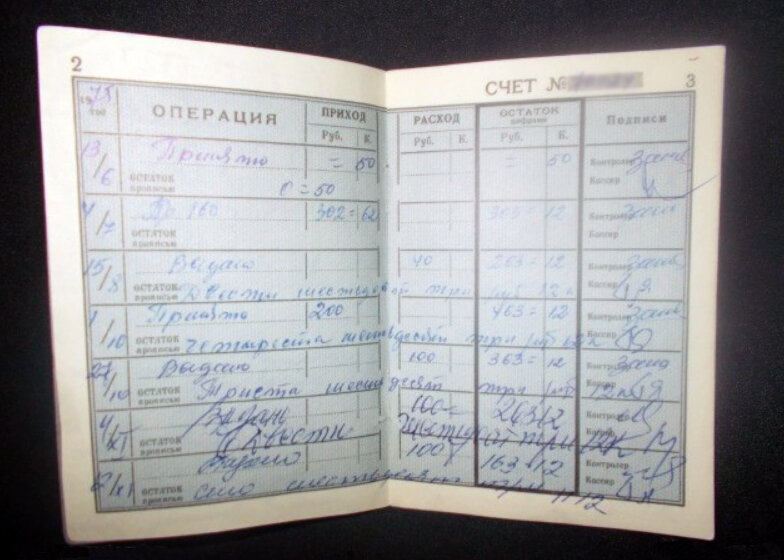 2
СЧЕТ №
3
1975 год
ОПЕРАЦИЯ
ПРИХОД
РАСХОД
ОСТАТОК цифрами
Подписи
Руб. К.
Руб. К.
Руб. К.
13/6 Принято = 50 = 50 Контролер
ОСТАТОК прописью 0=50 Кассир
4/7 302=62 303=12 Контролер
ОСТАТОК прописью Кассир
15/8 Выдано 40 263=12 Контролер
ОСТАТОК прописью Двести шестьдесят три руб 12 к Кассир
1/10 Принято 200 463=12 Контролер
ОСТАТОК прописью четыреста шестьдесят три руб 12 к Кассир
Выдано 100 363=12 Контролер
ОСТАТОК прописью Триста шестьдесят три руб 12 к Кассир
4/XI Выдано 100= 263 12 Контролер
ОСТАТОК прописью Двести шестьдесят три Кассир
Выдано 100 163=12 Контролер
ОСТАТОК прописью сто шестьдесят три 12 Кассир